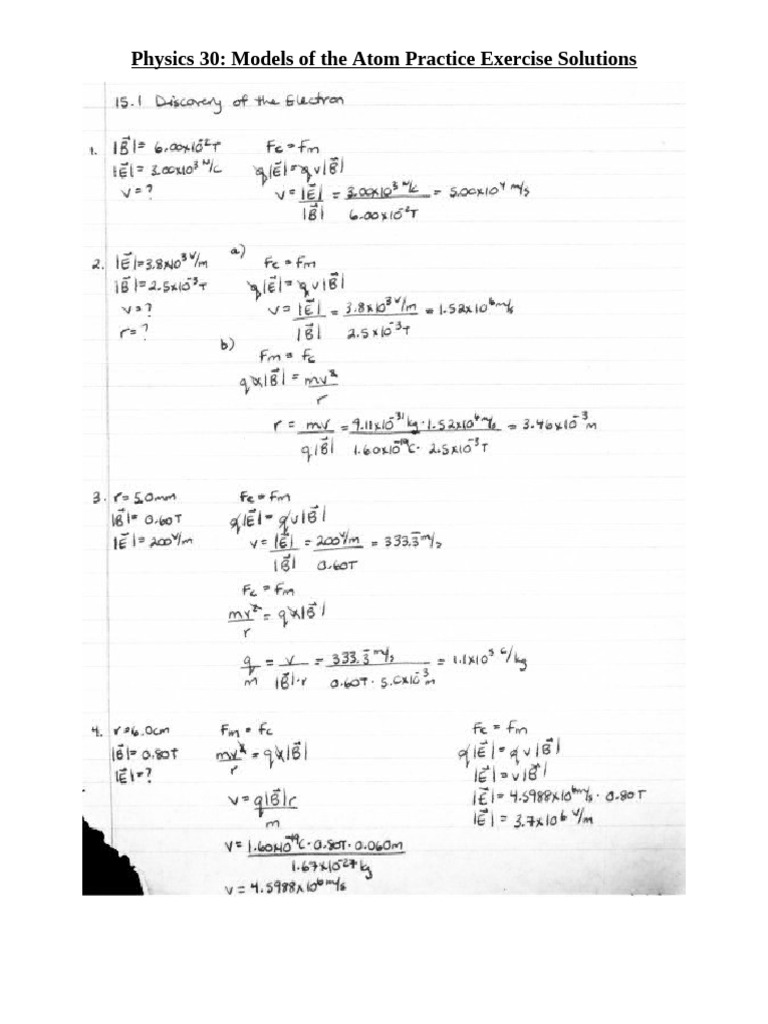 Physics 30: Models of the Atom Practice Exercise Solutions
15.1 Discovery of the Electron
1. |B⃗| = 6.00x10⁻²T
|E⃗| = 3.00x10³ N/C
v = ?
Fe = Fm
q|E⃗| = qv|B⃗|
v = |E⃗|/|B⃗| = 3.00x10³ N/C / 6.00x10⁻²T = 5.00x10⁴ m/s
2. |E⃗| = 3.8x10³ V/m
|B⃗| = 2.5x10⁻³T
v = ?
r = ?
a)
Fe = Fm
q|E⃗| = qv|B⃗|
v = |E⃗|/|B⃗| = 3.8x10³ V/m / 2.5x10⁻³T = 1.52x10⁶ m/s
b)
Fm = Fc
qv|B⃗| = mv²/r
r = mv/q|B⃗| = 9.11x10⁻³¹kg · 1.52x10⁶ m/s / 1.60x10⁻¹⁹C · 2.5x10⁻³T = 3.46x10⁻³ m
3. r = 5.0mm
|B⃗| = 0.60T
|E⃗| = 200 V/m
Fe = Fm
q|E⃗| = qv|B⃗|
v = |E⃗|/|B⃗| = 200 V/m / 0.60T = 333.3̅ m/s
Fc = Fm
mv²/r = qv|B⃗|
q/m = v/|B⃗|·r = 333.3̅ m/s / 0.60T · 5.0x10⁻³m = 1.1x10⁵ C/kg
4. r = 6.0cm
|B⃗| = 0.80T
|E⃗| = ?
Fm = Fc
mv²/r = qv|B⃗|
v = q|B⃗|r/m
v = 1.60x10⁻¹⁹C · 0.80T · 0.060m / 1.67x10⁻²⁷kg
v = 4.5988x10⁶ m/s
Fe = Fm
q|E⃗| = qv|B⃗|
|E⃗| = v|B⃗|
|E⃗| = 4.5988x10⁶ m/s · 0.80T
|E⃗| = 3.7x10⁶ V/m